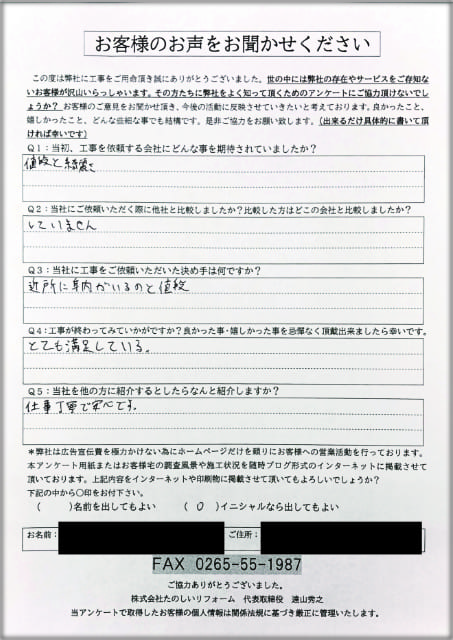 お客様のお声をお聞かせください
この度は弊社に工事をご用命頂き誠にありがとうございました。世の中には弊社の存在やサービスをご存知ない
お客様が沢山いらっしゃいます。その方たちに弊社をよく知って頂くためのアンケートにご協力頂けないでし
ょうか？ お客様のご意見をお聞かせ頂き、今後の活動に反映させていきたいと考えております。良かったこと、
嬉しかったこと、どんな些細な事でも結構です。是非ご協力をお願い致します。（出来るだけ具体的に書いて頂
ければ幸いです）
Q1：当初、工事を依頼する会社にどんな事を期待されていましたか？
値段と綺麗さ
Q2：当社にご依頼いただく際に他社と比較しましたか？比較した方はどこの会社と比較しましたか？
していません
Q3：当社に工事をご依頼いただいた決め手は何ですか？
近所に身内がいるのと値段
Q4：工事が終わってみていかがですか？良かった事・嬉しかった事を忌憚なく頂戴出来ましたら幸いです。
とても満足している。
Q5：当社を他の方に紹介するとしたらなんと紹介しますか？
仕事丁寧で安心です。
＊弊社は広告宣伝費を極力かけない為にホームページだけを頼りにお客様への営業活動を行っております。
本アンケート用紙またはお客様宅の調査風景や施工状況を随時ブログ形式のインターネットに掲載させて
頂いております。上記内容をインターネットや印刷物に掲載させて頂いてもよろしいでしょうか？
下記の中から〇印をお付下さい。
（　　）名前を出してもよい　（ 〇 ）イニシャルなら出してもよい
お名前： ご住所：
FAX 0265-55-1987
ご協力ありがとうございました。
株式会社たのしいリフォーム 代表取締役 遠山秀之
当アンケートで取得したお客様の個人情報は関係法規に基づき厳正に管理いたします。